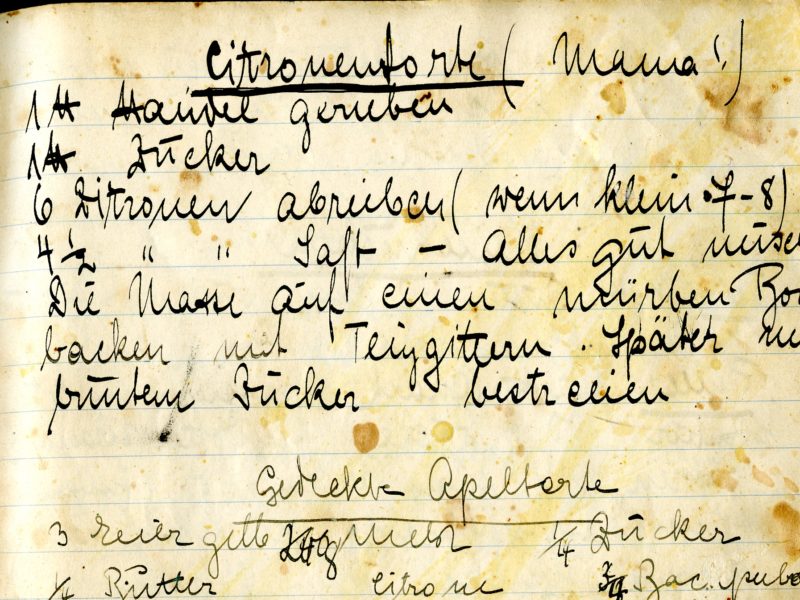 Citronentorte (Mama!)
1 ℔ Mandel gerieben
1 ℔ Zucker
6 Zitronen abreiben (wenn klein 7-8)
4 1/2 " " Saft – Alles gut
Die Masse auf einen mürben
backen mit Teiggittern. Später
buntem Zucker bestreuen
Gedeckte Apeltorte
3 eier gelb Mehl 1/4 Zucker
1/4 Butter Citrone